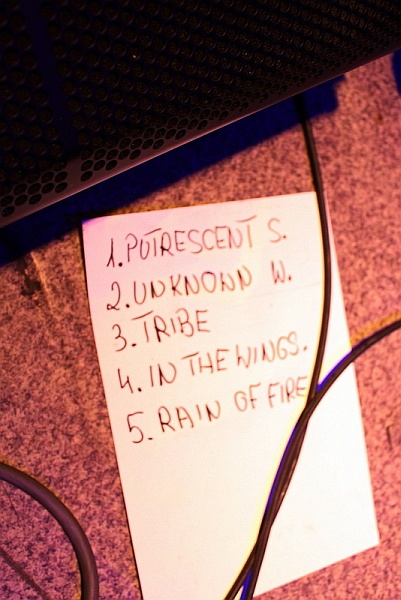 1. PUTRESCENT S.
2. UNKNOWN W.
3. TRIBE
4. IN THE WINGS.
5. RAIN OF FIRE